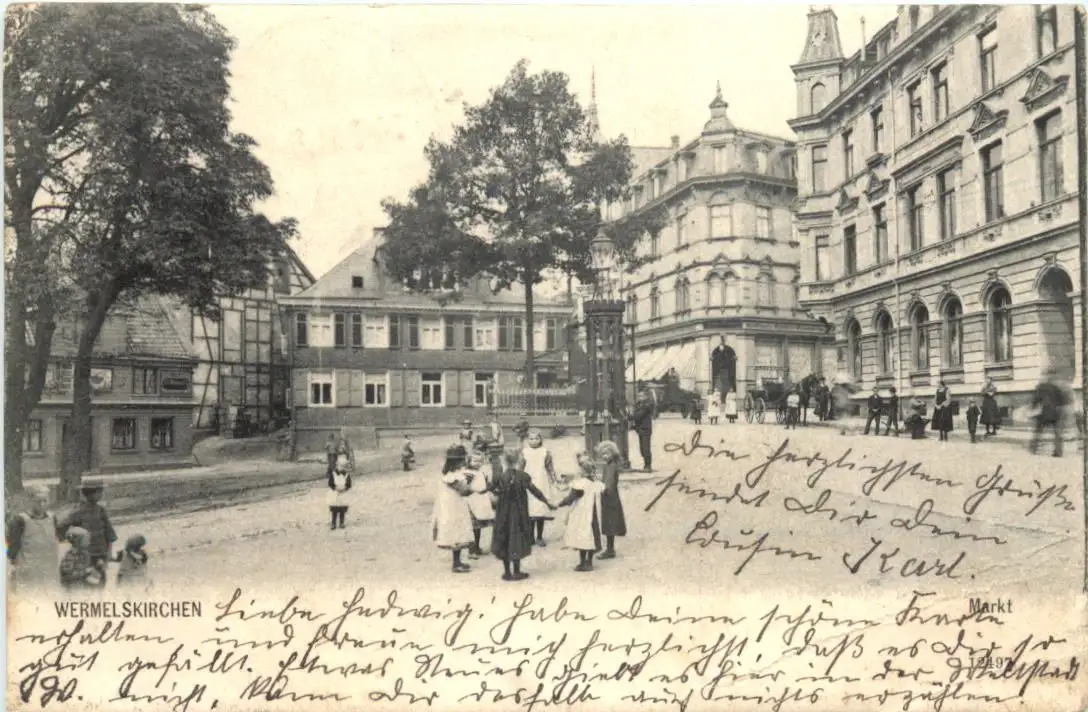 Die herzlichsten Grüße
sendet Dir Dein
Cousin Karl.
WERMELSKIRCHEN
Markt
Liebe Hedwig! Habe Deine schöne Karte
erhalten und freue mich herzlichst, daß es Dir so
gut gefällt. Etwas Neues giebt es hier in der Weltstadt
W. nicht, kann Dir deshalb auch nichts erzählen.